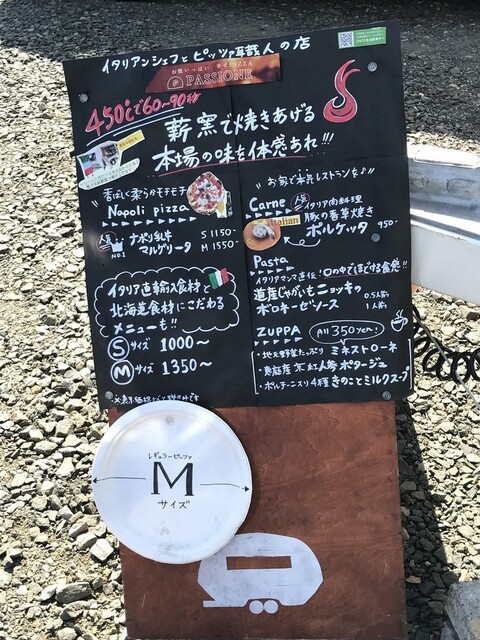 イタリアンシェフとピッツァ職人の店
PASSIONE
450℃で60〜90秒
薪窯で焼きあげる
本場の味を体感あれ!!!
香ばし柔らかモチモチ
Napoli pizza
人気 NO.1
ナポリ乳牛 S 1150-
マルゲリータ M 1550-
イタリア直輸入食材と
北海道食材にこだわる
メニューも!!
Sサイズ 1000〜
Mサイズ 1350〜
"お家で本気レストランを♪"
Carne 人気 イタリア肉料理
豚の香草焼き
Italian
ポルケッタ 950-
Pasta
イタリアマンマ直伝:口の中でほどける食感!!
道産じゃがいもニョッキの
ボロネーゼソース
0.5人前
1人前
ZUPPA All 350yen!
・地元野菜たっぷり ミネストローネ
紅人参ポタージュ
・ポルチーニ入り4種きのことミルクスープ
レギュラーピッツァ
M
サイズ